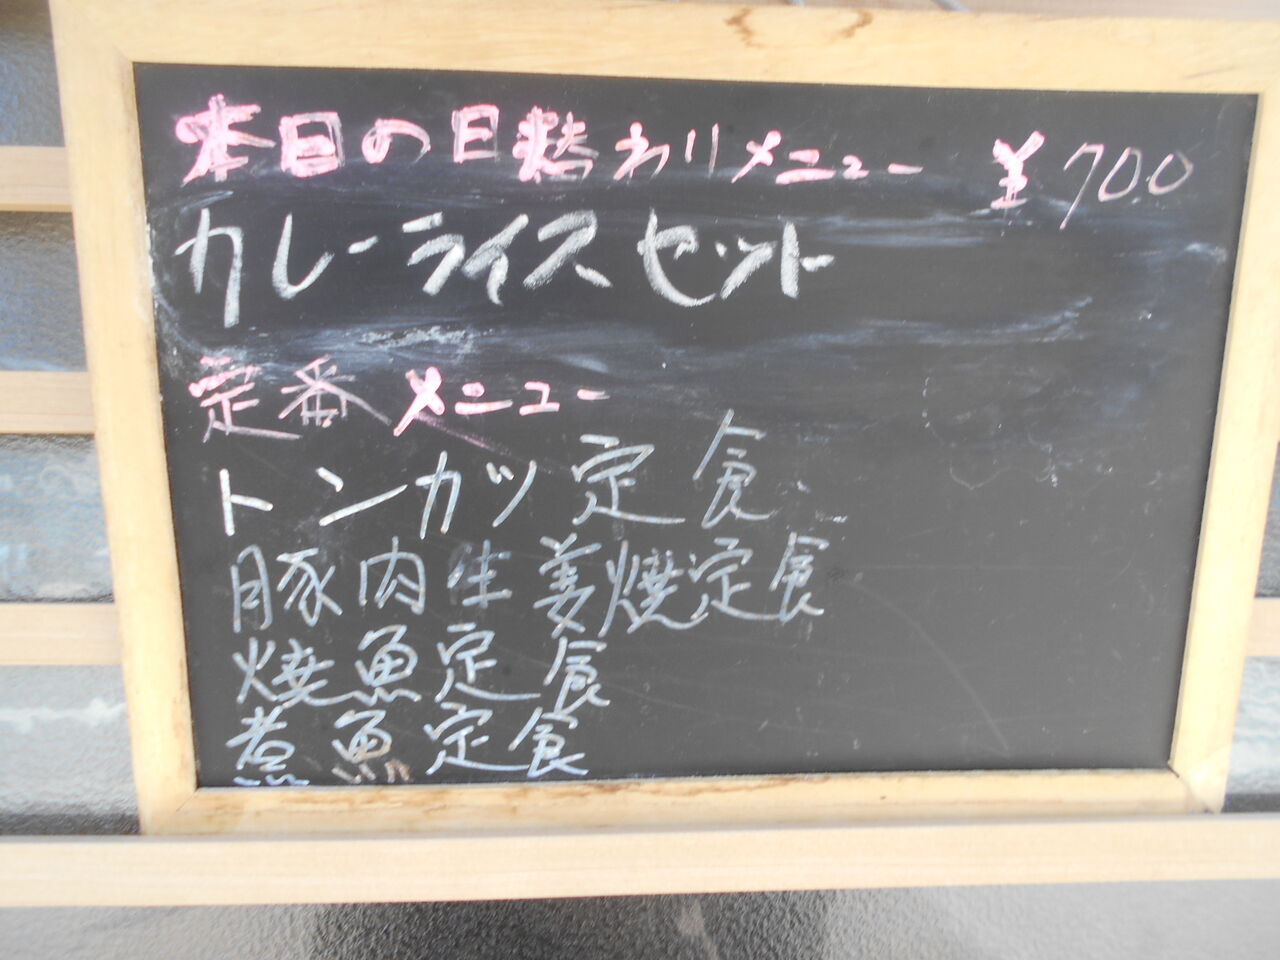 本日の日替わりメニュー ¥700
カレーライスセット
定番メニュー
トンカツ定食
豚肉生姜焼定食
焼魚定食
煮魚定食